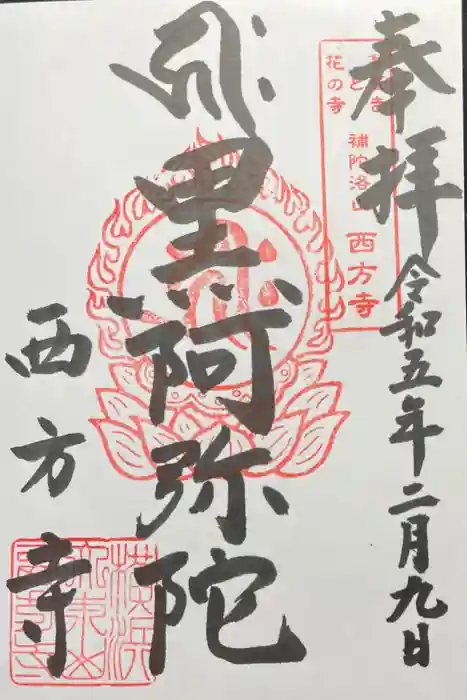 奉拝
令和五年二月九日
と
花の寺
補陀洛山 西方寺
黒阿弥陀
西方寺
横浜